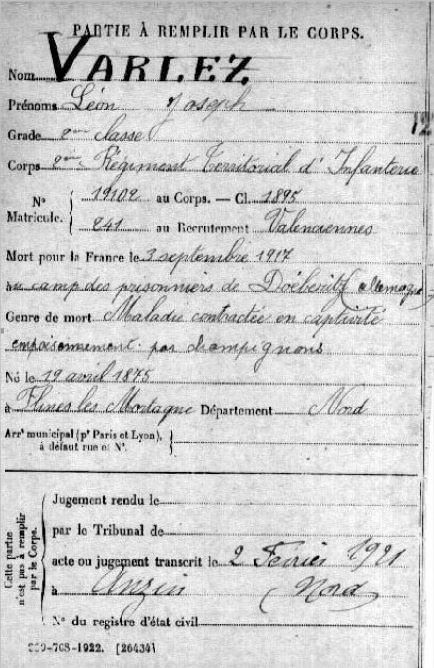 PARTIE À REMPLIR PAR LE CORPS.
Nom VARLEZ
Prénoms Léon Joseph
Grade 2ème classe
Corps 2ème Régiment Territorial d'Infanterie
12
N° Matricule. { 19102 au Corps. — Cl. 1895
241 au Recrutement Valenciennes
Mort pour la France le 3 septembre 1917
au camp des prisonniers de Doëberitz (allemagne)
Genre de mort Maladie contractée en captivité
empoisonnement par champignons
Né le 19 avril 1875
à Flines les Mortagne Département Nord
Arrt municipal (pr Paris et Lyon), à défaut rue et N°. }
Cette partie n'est pas à remplir par le Corps. {
Jugement rendu le
par le Tribunal de
acte ou jugement transcrit le 2 Février 1921
à Anzin (Nord
N° du registre d'état civil
-708-1922. [26434]